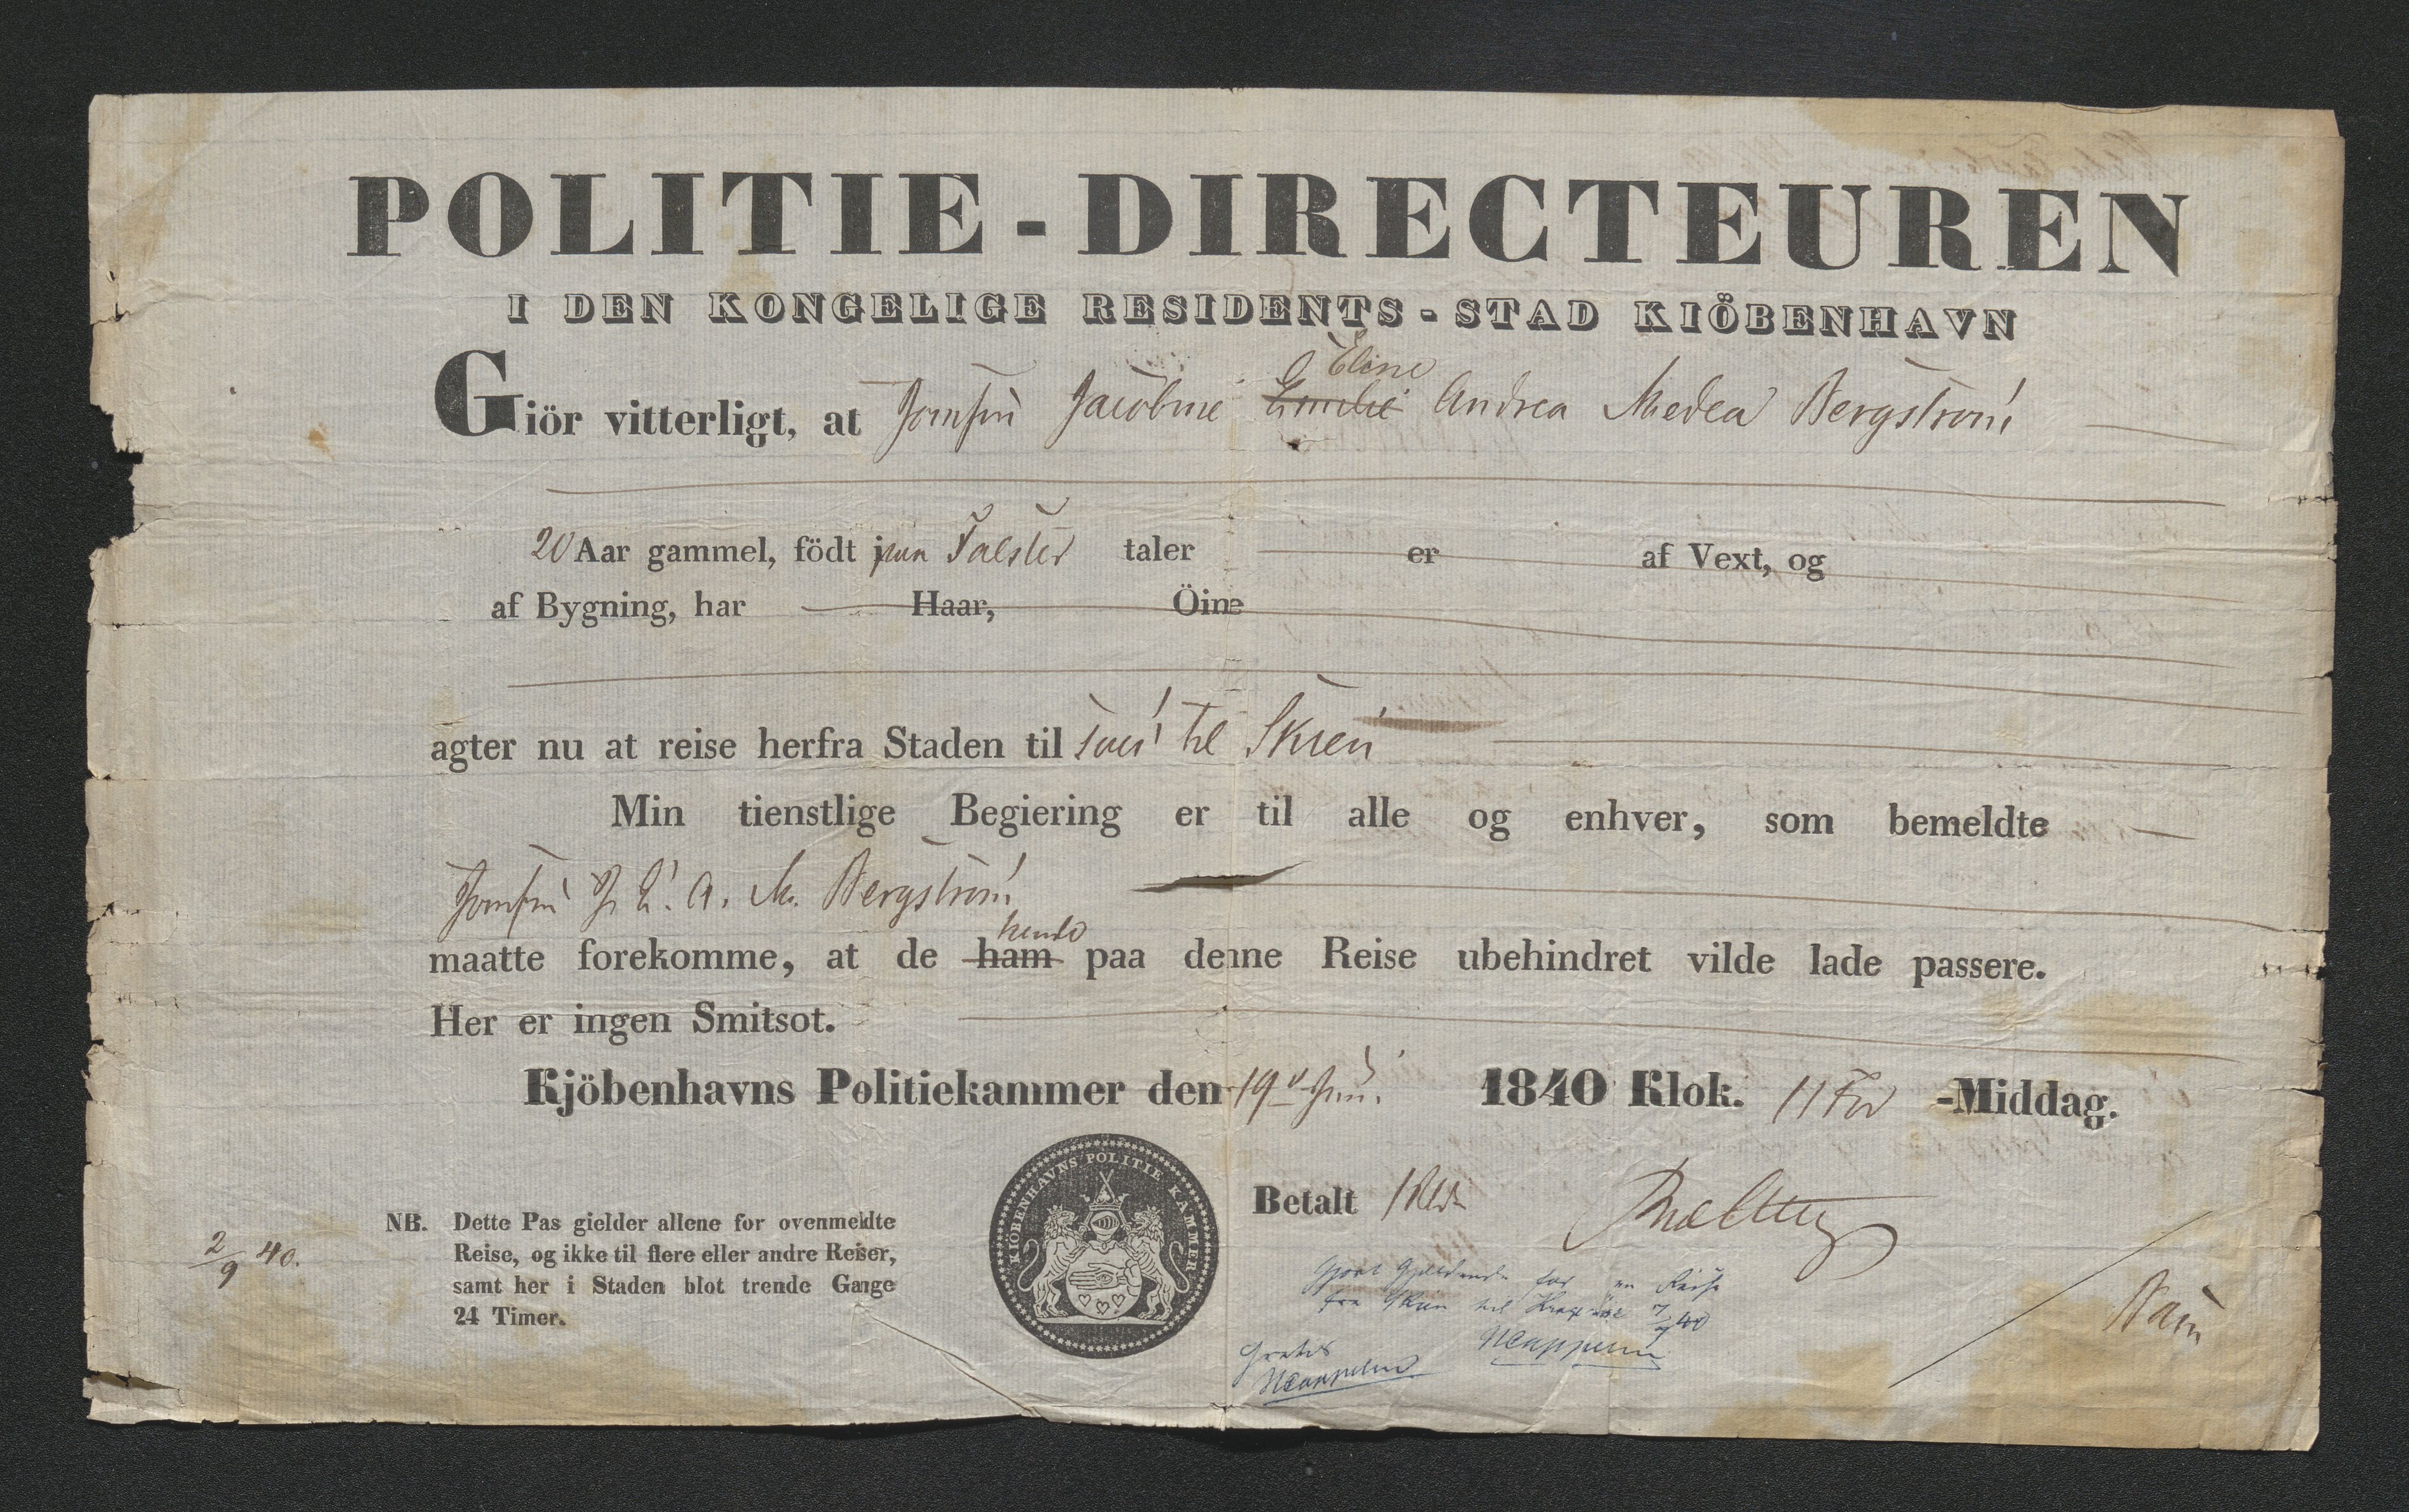 POLITIE-DIRECTEUREN
I DEN KONGELIGE RESIDENTS-STAD KIÖBENHAVN
Eline
Giör vitterligt, at Jomfru Jacobine Emelie Andrea Medea Bergstrøm
20 Aar gammel, födt paa Falster taler er af Vext, og
af Bygning, har Haar, Öine
agter nu at reise herfra Staden til söes til Skien
Min tienstlige Begiering er til alle og enhver, som bemeldte
Jomfru J. E. A. M. Bergstrøm
hende
maatte forekomme, at de ham paa denne Reise ubehindret vilde lade passere.
Her er ingen Smitsot.
Kjöbenhavns Politiekammer den 19d Juni 1840 Klok. 11 For-Middag.
KIÖBENHAVNS POLITIE KAMMER
Betalt 1
NB. Dette Pas gielder allene for ovenmeldte
Reise, og ikke til flere eller andre Reiser,
samt her i Staden blot trende Gange
24 Timer.
2/9 40.
gjort Gjeldende for en Reise
fra Skien til 40
Gratis